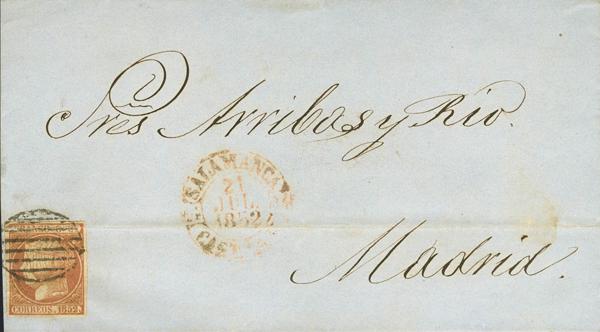 Sres Arribas y Rio.
SALAMANCA
21
JUL.
1852
Madrid.
CORREOS. 1852.